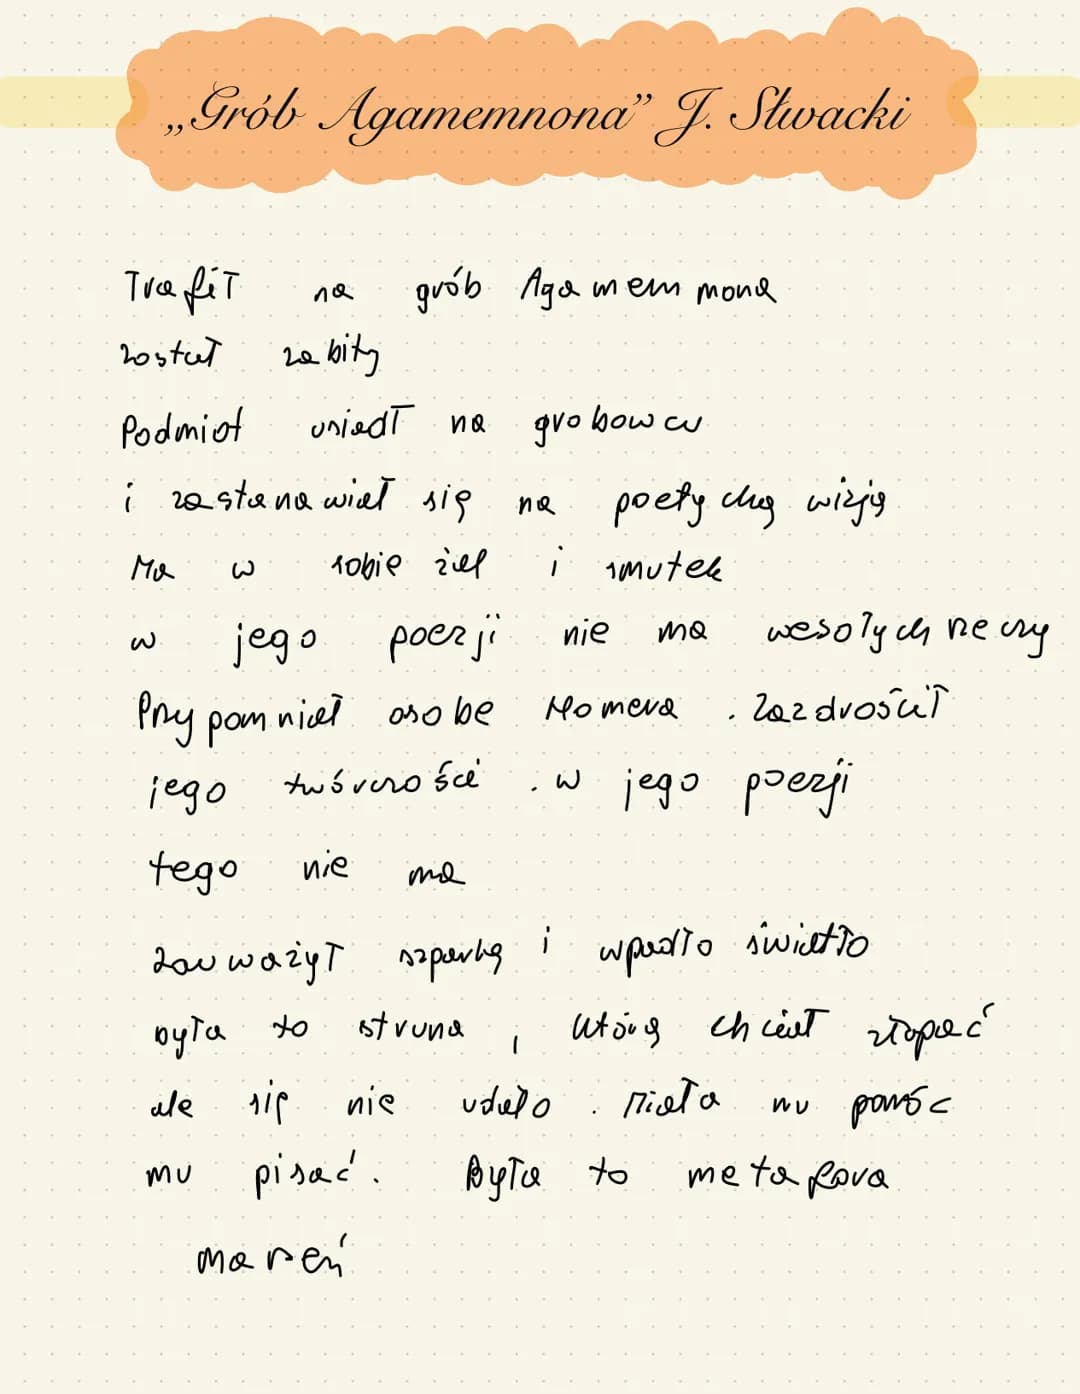 „Grób Agamemnona” J. Słwacki
Trafił na grób Agamemnona
został zabity
Podmiot usiadł na grobowcu
i zastanawiał się na poetycką wizją
Ma w sobie żal i smutek
w jego poezji nie ma wesołych rzeczy
Przypomniał osobe Homera . Zazdrościł
jego twórczości . w jego poezji
tego nie ma
Zauważył szparkę i wpadło światło
była to struna , którą chciał złapać
ale się nie udało . Miała mu pomóc
mu pisać . Była to metafora
marzeń